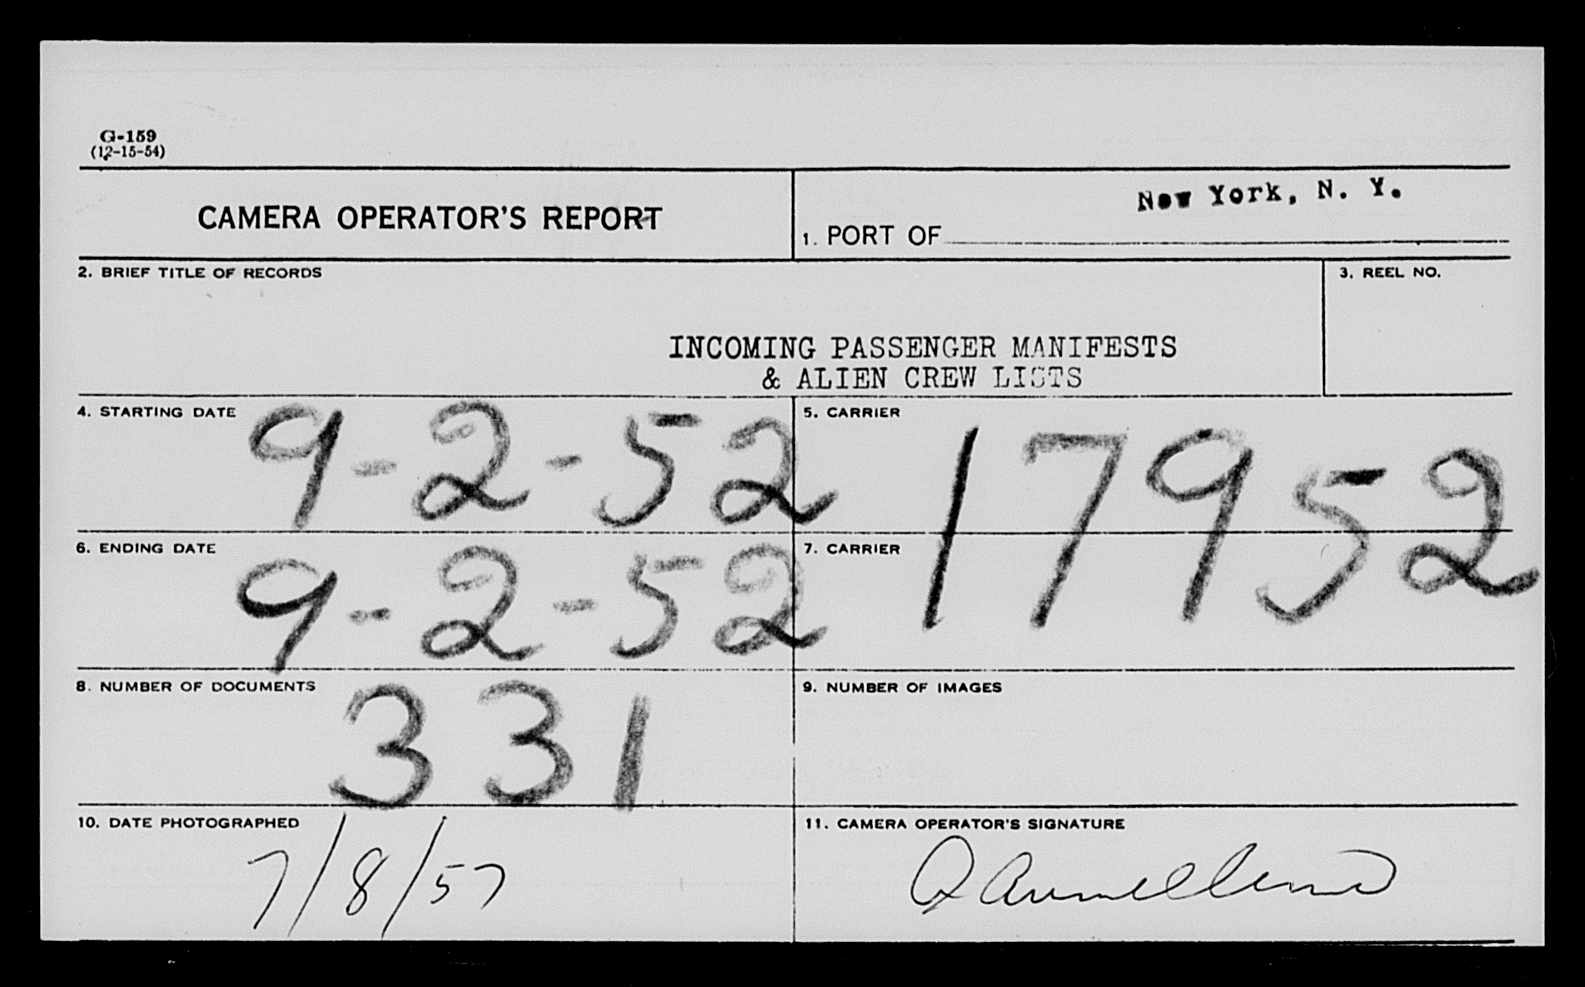 G-159
(12-15-54)
CAMERA OPERATOR'S REPORT
New York, N. Y.
1. PORT OF
2. BRIEF TITLE OF RECORDS
3. REEL NO.
INCOMING PASSENGER MANIFESTS
& ALIEN CREW LISTS
4. STARTING DATE 9-2-52
5. CARRIER
17952
6. ENDING DATE 9-2-52
7. CARRIER
8. NUMBER OF DOCUMENTS 331
9. NUMBER OF IMAGES
10. DATE PHOTOGRAPHED
7/8/57
11. CAMERA OPERATOR'S SIGNATURE